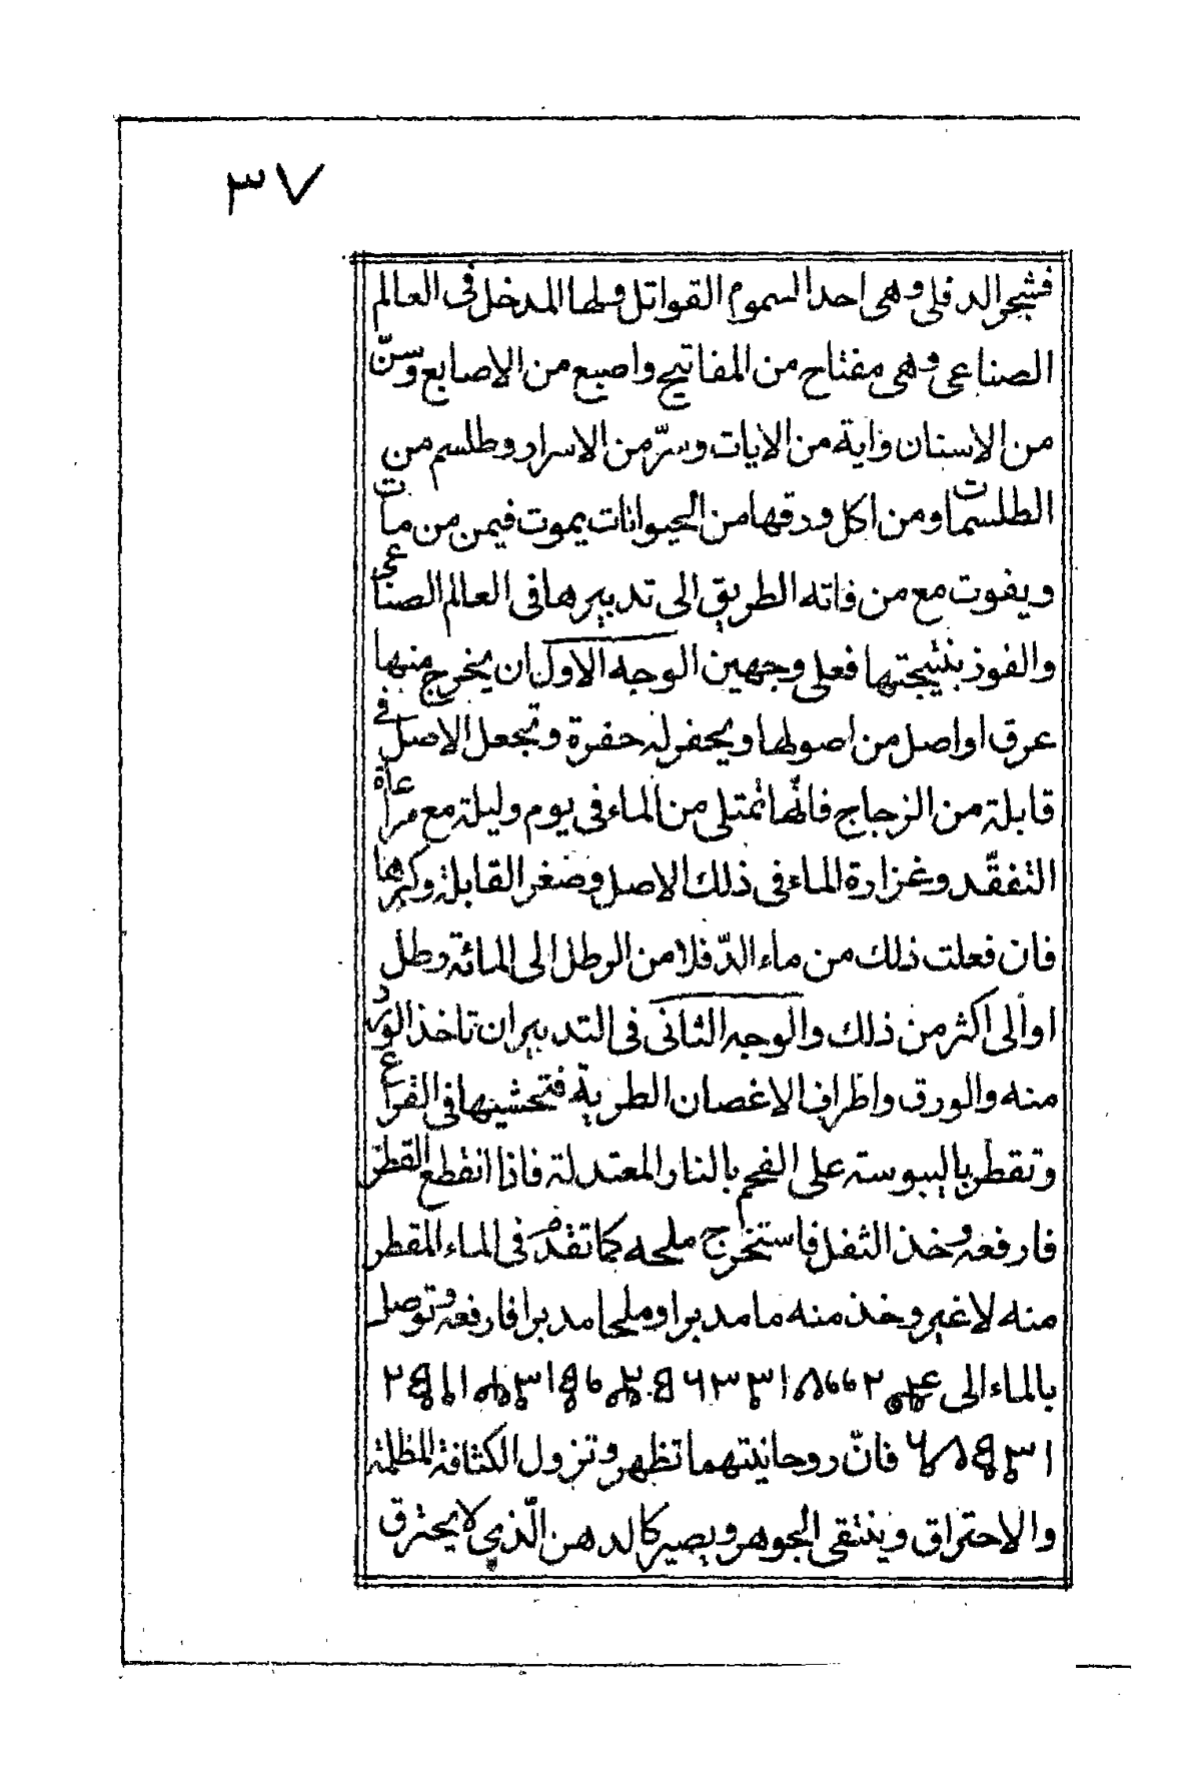 ٣٧
فشجر الدفلى وهى احد السموم القواتل ولها المدخل فى العالم
الصناعى وهى مفتاح من المفاتيح واصبع من الاصابع وسنّ
من الاسنان واية من الايات وسرّ من الاسرار وطلسم من
الطلسمات ومن اكل ورقها من الحيوانات يموت فيمن من مات
ويفوت مع من فاته الطريق الى تدبيرها فى العالم الصناعى
والفوز بنتيجتها فعلى وجهين الوجه الاول ان يخرج منها
عرق او اصل من اصولها ويحفر له حفرة وتجعل الاصل فى
قابلة من الزجاج فانها تمتلى من الماء فى يوم وليلة مع مراعاة
التفقّد وغزارة الماء فى ذلك الاصل وصغر القابلة وكبرها
فان فعلت ذلك من ماء الدّفلا من الرطل الى المائة رطل
او الى اكثر من ذلك والوجه الثانى فى التدبير ان تاخذ الورد
منه والورق واطراف الاغصان الطرية فتحشيها فى القرع
وتقطر باليبوسته على الفحم بالنار المعتدلة فاذا انقطع القطر
فارفعه وخذ الثفل فاستخرج ملحه كما تقدم فى الماء المقطر
منه لا غير وخذ منه ما مدبرا وملحا مدبرا فارفعه وتوصل
بالماء الى
فانّ روحانيتهما تظهر وتزول الكثافة المظلمة
والاحتراق وينتقى الجوهر ويصير كالدهن الّذى لا يحترق